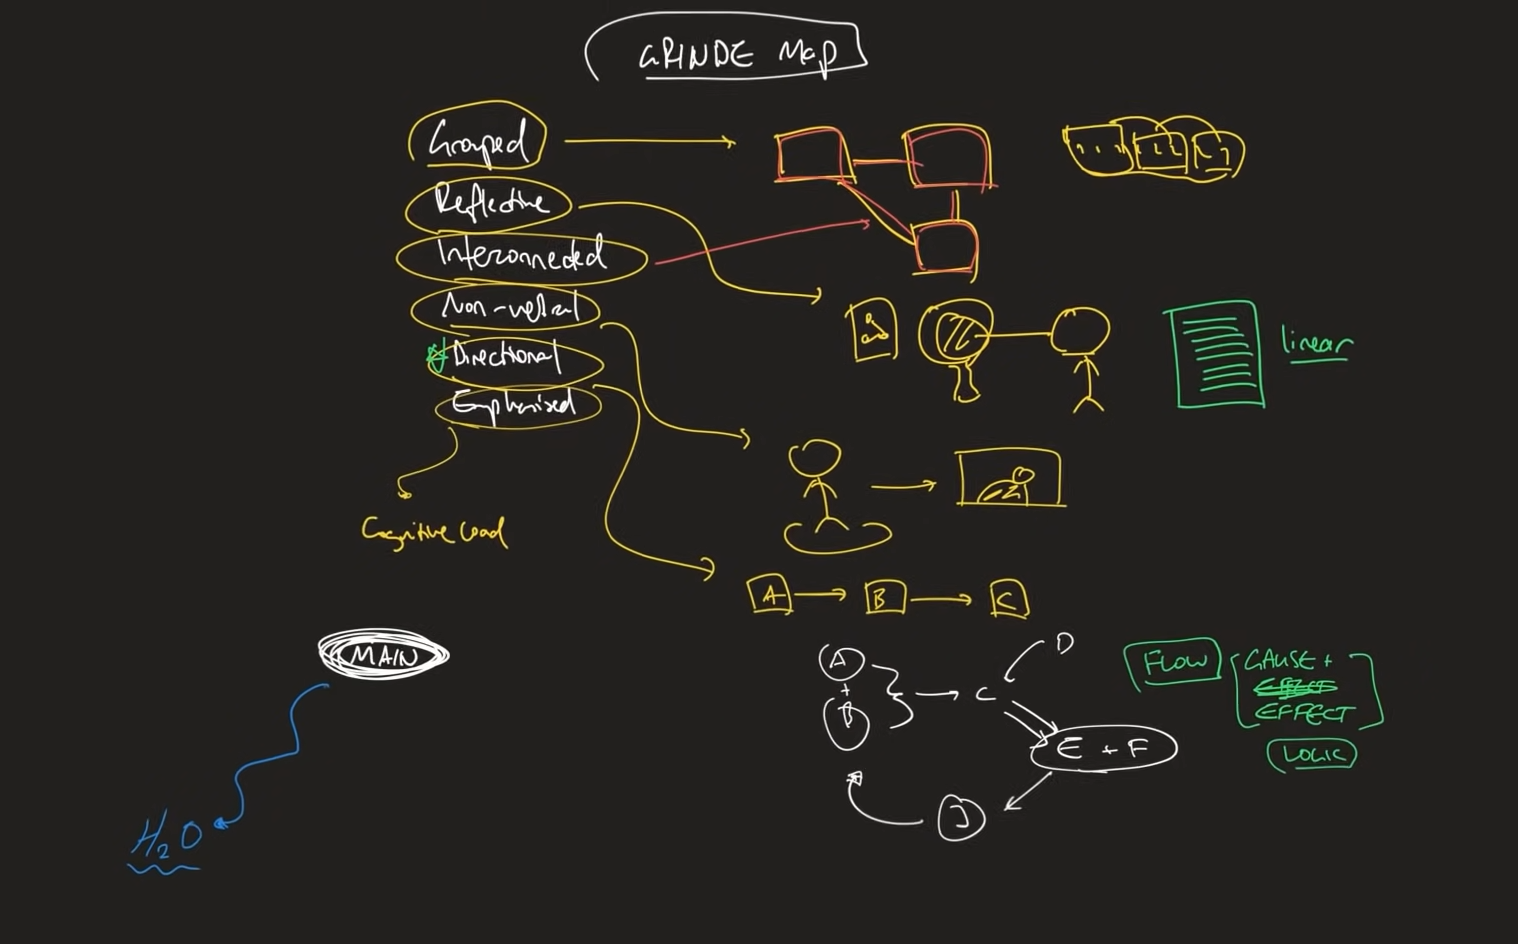 GRINDE Map
Grouped
Reflective
Interconnected
Non-verbal
Directional
Emphasised
linear
Cognitive Load
A
B
C
MAIN
A
+
B
C
D
E + F
J
FLOW
CAUSE +
EFFECT
EFFECT
LOGIC
H₂O